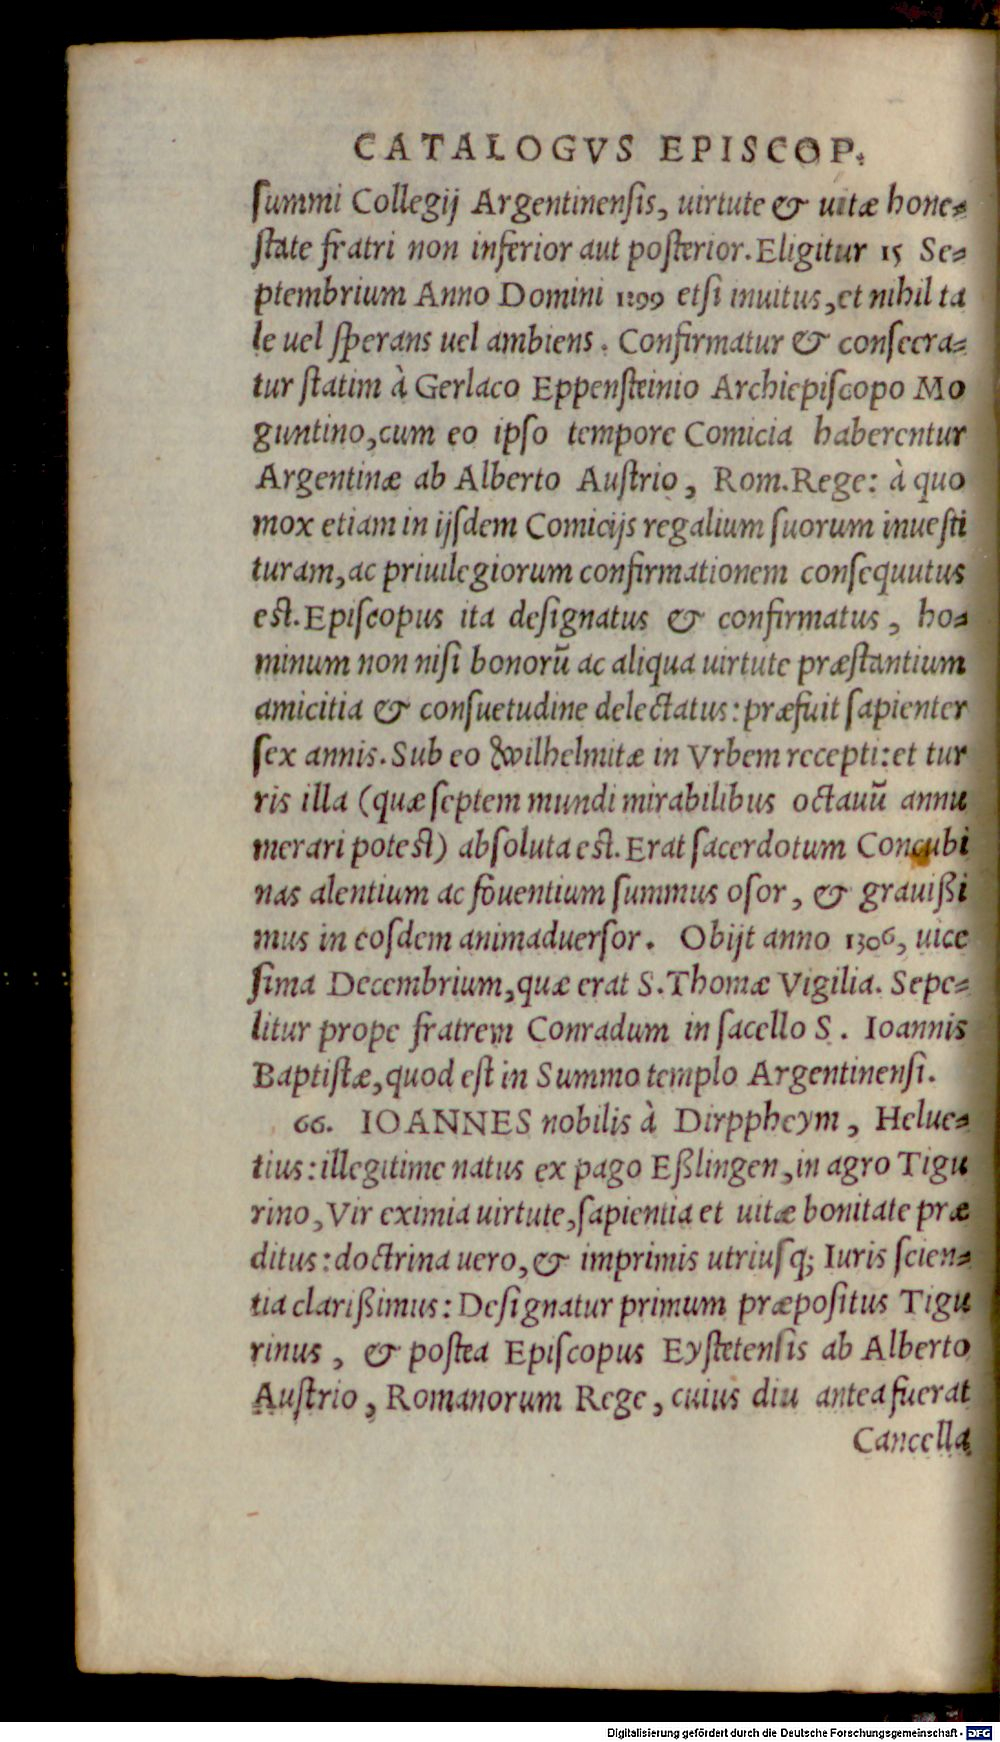 CATALOGVS EPISCOP.
ſummi Collegij Argentinenſis, uirtute & uitæ hone-
ſtate fratri non inferior aut poſterior. Eligitur 15 Se-
ptembrium Anno Domini 1299 etſi inuitus, et nihil ta
le uel ſperans uel ambiens. Confirmatur & conſecra-
tur ſtatim à Gerlaco Eppenſteinio Archiepiſcopo Mo
guntino, cum eo ipſo tempore Comicia haberentur
Argentinæ ab Alberto Auſtrio, Rom. Rege: à quo
mox etiam in ijſdem Comicijs regalium ſuorum inueſti
turam, ac priuilegiorum confirmationem conſequutus
eſt. Epiſcopus ita deſignatus & confirmatus, ho-
minum non niſi bonorū ac aliqua uirtute præſtantium
amicitia & conſuetudine delectatus: præfuit ſapienter
ſex annis. Sub eo Wilhelmitæ in Vrbem recepti: et tur
ris illa (quæ ſeptem mundi mirabilibus octauū annu
merari poteſt) abſoluta eſt. Erat ſacerdotum Concubi
nas alentium ac fouentium ſummus oſor, & grauißi
mus in eoſdem animaduerſor. Obijt anno 1306, uice
ſima Decembrium, quæ erat S. Thomæ Vigilia. Sepe-
litur prope fratrem Conradum in ſacello S. Ioannis
Baptiſtæ, quod eſt in Summo templo Argentinenſi.
66. IOANNES nobilis à Dirppheym, Helue-
tius: illegitime natus ex pago Eßlingen, in agro Tigu
rino, Vir eximia uirtute, ſapientia et uitæ bonitate præ
ditus: doctrina uero, & imprimis utriuſq; Iuris ſcien-
tia clarißimus: Deſignatur primum præpoſitus Tigu
rinus, & poſtea Epiſcopus Eyſtetenſis ab Alberto
Auſtrio, Romanorum Rege, cuius diu antea fuerat
Cancella
Digitalisierung gefördert durch die Deutsche Forschungsgemeinschaft - DFG